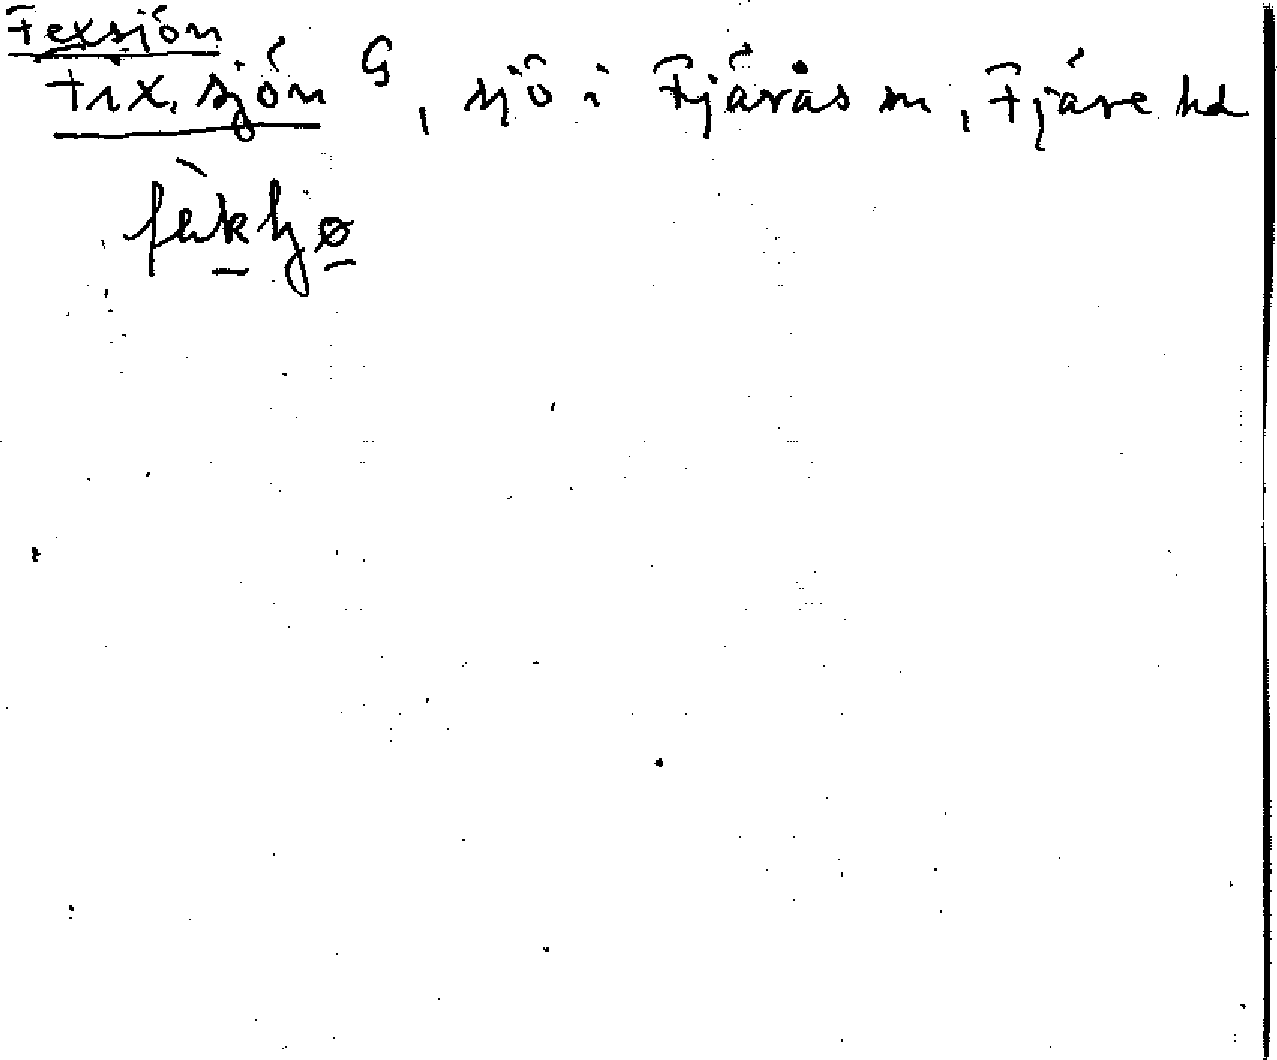 Fexsjön
Fix, sjön G, sjö i Fjärås sn, Fjäre hd